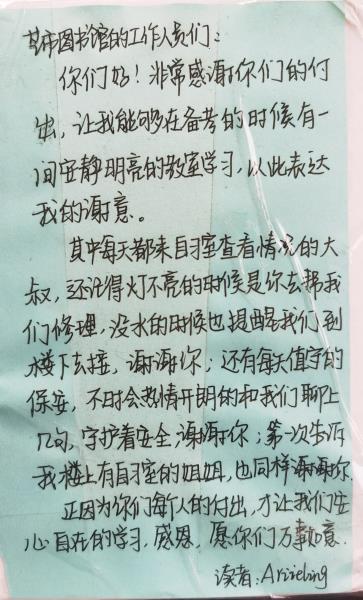 某市图书馆的工作人员们：
你们好！非常感谢你们的付
出，让我能够在备考的时候有一
间安静明亮的教室学习，以此表达
我的谢意。
其中每天都来自习室查看情况的大
叔，还记得灯不亮的时候是你去帮我
们修理，没水的时候也提醒我们到
楼下去接，谢谢你；还有每天值守的
保安，不时会热情开朗的和我们聊上
几句，守护着安全，谢谢你；第一次告诉
我楼上有自习室的姐姐，也同样谢谢你
正因为你们每个人的付出，才让我们安
心自在的学习，感恩，愿你们万事如意.
读者：